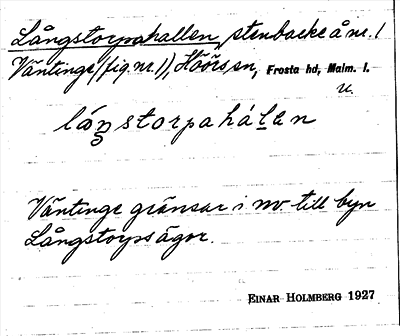 Långstorpahallen, stenbacke å nr. 1
Väntinge (fig nr. 1), Höörs sn, Frosta hd, Malm. l.
u.
låŋstorpahálen
Väntinge gränsar i nv till byn
Långstorps ägor.
EINAR HOLMBERG 1927